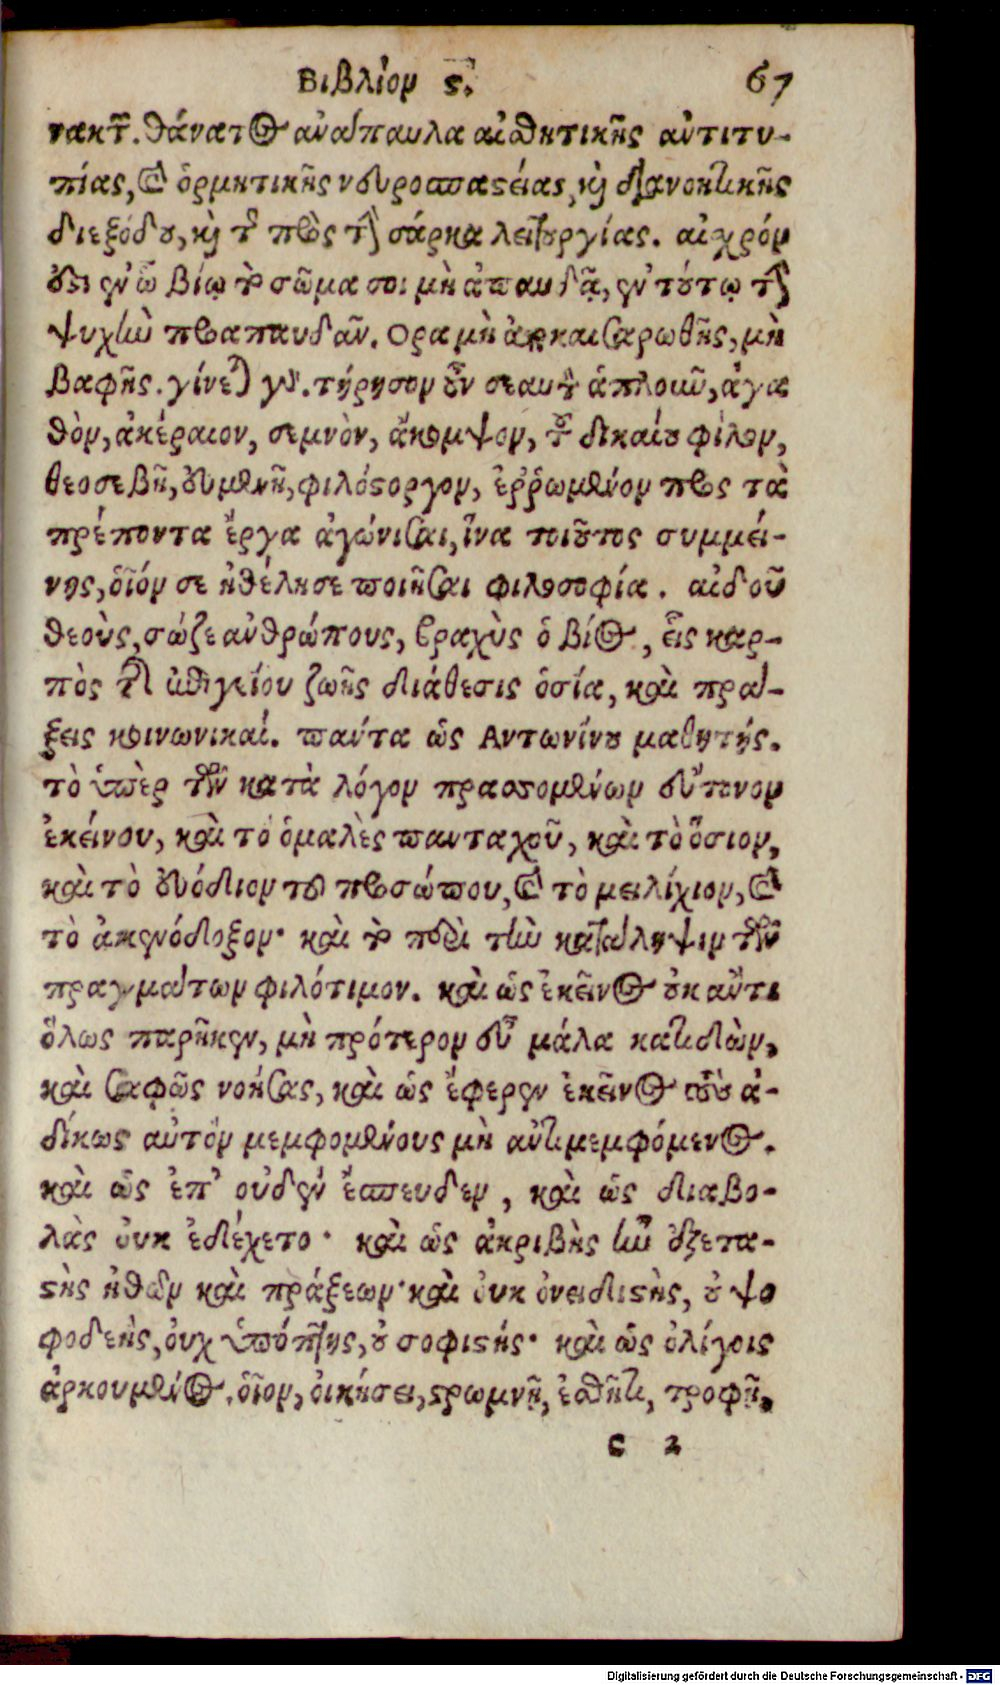 Βιβλίον ϛ. 67
τακτ. θάνατος ἀνάπαυλα αἰσθητικῆς ἀντιτυ-
πίας, καὶ ὁρμητικῆς νευροσπαστείας, καὶ διανοητικῆς
διεξόδου, καὶ τῆς πρὸς τὴν σάρκα λειτουργίας. αἰσχρόν
ἐστι ἐν ᾧ βίῳ τὸ σῶμά σοι μὴ ἀπαυδᾷ, ἐν τούτῳ τὴν
ψυχὴν προαπαυδᾶν. Ορα μὴ ἀποκαισαρωθῇς, μὴ
βαφῇς. γίνεται γάρ. τήρησον οὖν σεαυτὸν ἁπλοῦν, ἀγα
θὸν, ἀκέραιον, σεμνὸν, ἄκομψον, τοῦ δικαίου φίλον,
θεοσεβῆ, εὐμενῆ, φιλόστοργον, ἐῤῥωμένον πρὸς τὰ
πρέποντα ἔργα ἀγώνισαι, ἵνα τοιοῦτος συμμεί-
νῃς, οἷόν σε ἠθέλησε ποιῆσαι φιλοσοφία. αἰδοῦ
θεοὺς, σώζε ἀνθρώπους, βραχὺς ὁ βίος, εἷς καρ-
πὸς τῆς ἐπιγείου ζωῆς διάθεσις ὁσία, καὶ πρά-
ξεις κοινωνικαί. πάντα ὡς Αντωνίνου μαθητής.
τὸ ὑπὲρ τῶν κατὰ λόγον πρασσομένων εὔτονον
ἐκείνου, καὶ τὸ ὁμαλὲς πανταχοῦ, καὶ τὸ ὅσιον,
καὶ τὸ εὔδιον τοῦ προσώπου, καὶ τὸ μειλίχιον, καὶ
τὸ ἀκενόδοξον· καὶ τὸ περὶ τὴν κατάληψιν τῶν
πραγμάτων φιλότιμον. καὶ ὡς ἐκεῖνος οὐκ ἄν τι
ὅλως παρῆκεν, μὴ πρότερον εὖ μάλα κατιδὼν,
καὶ σαφῶς νοήσας, καὶ ὡς ἔφερεν ἐκεῖνος τοὺς ἀ-
δίκως αὐτὸν μεμφομένους μὴ ἀντιμεμφόμενος.
καὶ ὡς ἐπ' οὐδὲν ἔσπευδεν, καὶ ὡς διαβο-
λὰς οὐκ ἐδέχετο· καὶ ὡς ἀκριβὴς ἦν ἐξετα-
στὴς ἠθῶν καὶ πράξεων· καὶ οὐκ ὀνειδιστὴς, οὐ ψο
φοδεὴς, οὐχ ὑπόπτης, οὐ σοφιστής· καὶ ὡς ὀλίγοις
ἀρκούμενος. οἷον, οἰκήσει, στρωμνῇ, ἐσθῆτι, τροφῇ,
c 2
Digitalisierung gefördert durch die Deutsche Forschungsgemeinschaft - DFG